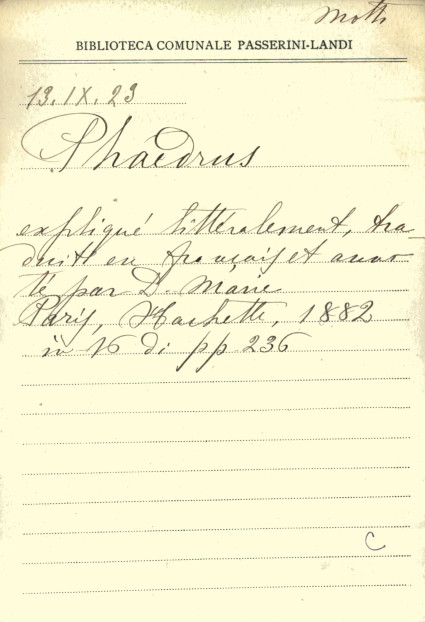 Moth
BIBLIOTECA COMUNALE PASSERINI-LANDI
13.IX.23
Phaedrus
expliqué littéralement, tra-
duit en français et anno
té par D. Marie
Paris, Hachette, 1882
in 16 di pp 236
C